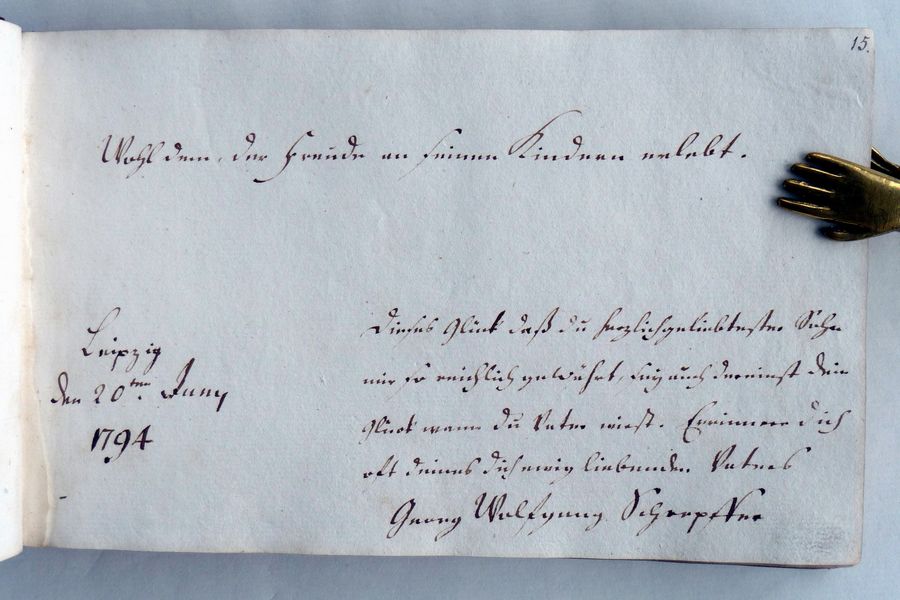 15.
Wohl dem, der Freude an seinen Kindern erlebt.
Dieses Glück daß du herzlichgeliebtester Sohn
mir so reichlich gewährt, sey auch dereinst dein
Glück wann du Vater wirst. Errinnere dich
oft deines dich ewig liebenden Vaters
Georg Wolfgang
Leipzig
den 20ten Juny
1794